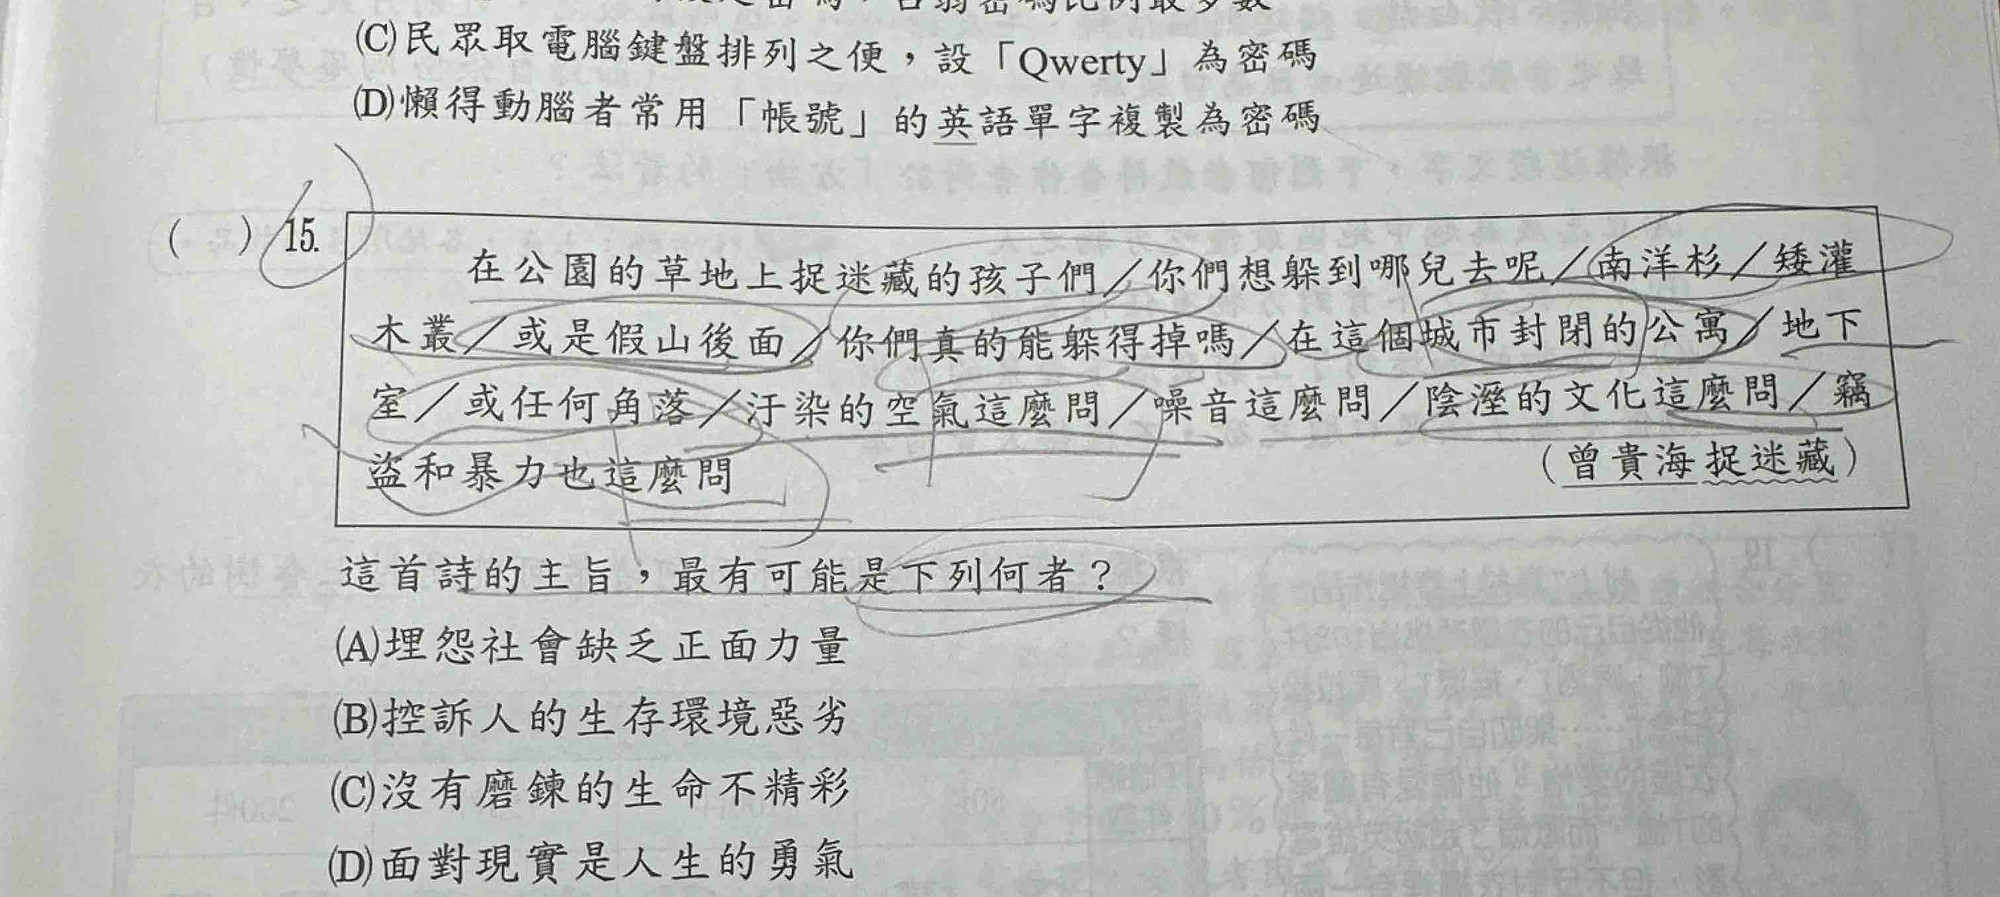 (C)民眾取電腦鍵盤排列之便，設「Qwerty」為密碼
(D)懶得動腦者常用「帳號」的英語單字複製為密碼
(　)15.
在公園的草地上捉迷藏的孩子們／你們想躲到哪兒去呢／南洋杉／矮灌
木叢／或是假山後面／你們真的能躲得掉嗎／在這個城市封閉的公寓／地下
室／或任何角落／汙染的空氣這麼問／噪音這麼問／陰溼的文化這麼問／竊
盜和暴力也這麼問
（曾貴海捉迷藏）
這首詩的主旨，最有可能是下列何者？
(A)埋怨社會缺乏正面力量
(B)控訴人的生存環境惡劣
(C)沒有磨鍊的生命不精彩
(D)面對現實是人生的勇氣